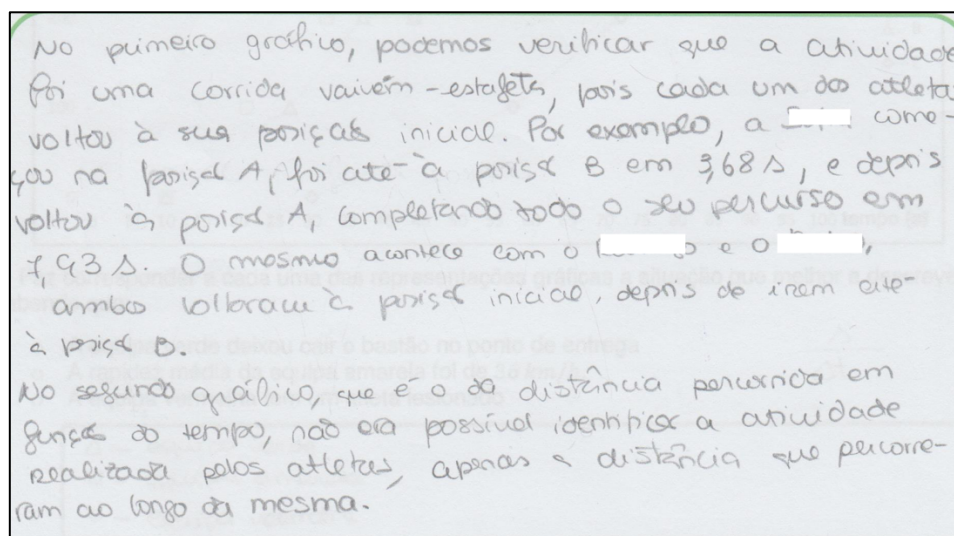 No primeiro gráfico, podemos verificar que a atividade
foi uma corrida vaivém-estafeta, pois cada um dos atletas
voltou à sua posição inicial. Por exemplo, a come-
çou na posição A, foi até à posição B em 3,68 s, e depois
voltou à posição A, completando todo o seu percurso em
s. O mesmo acontece com o e o ,
ambos voltaram à posição inicial, depois de irem até
à posição B.
No segundo gráfico, que é o da distância percorrida em
função do tempo, não era possível identificar a atividade
realizada pelos atletas, apenas a distância que percorre-
ram ao longo da mesma.